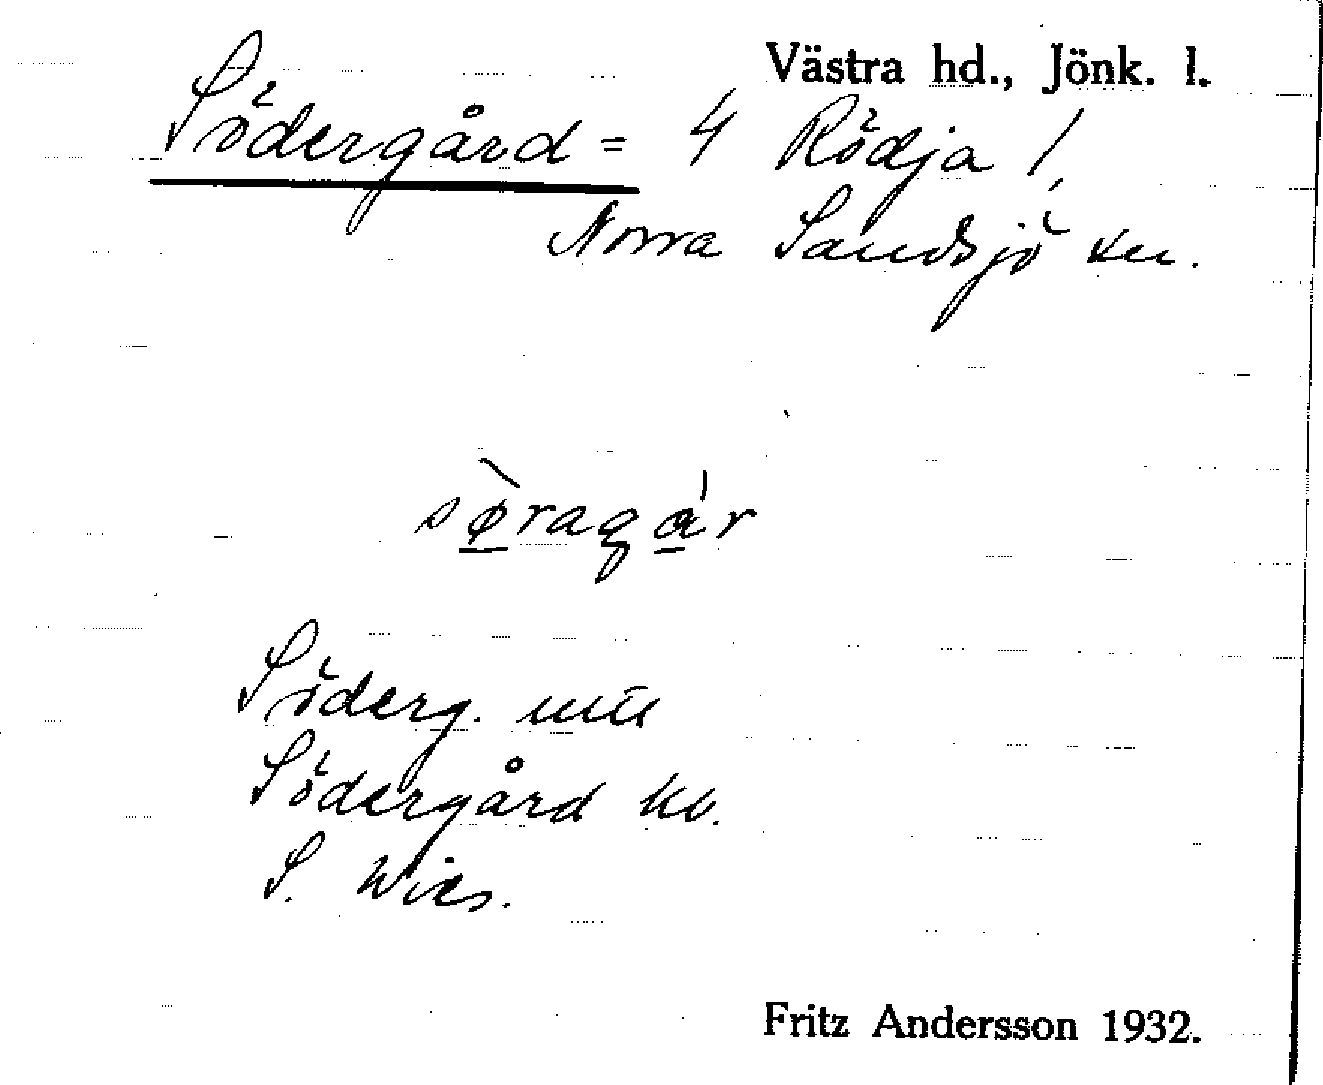 Västra hd., Jönk. l.
Södergård = 4 Rödja /,
Norra Sandsjö sn.
sø̱̀raga̱̍r
Söderg.
Södergård kb.
S. Wies.
Fritz Andersson 1932.